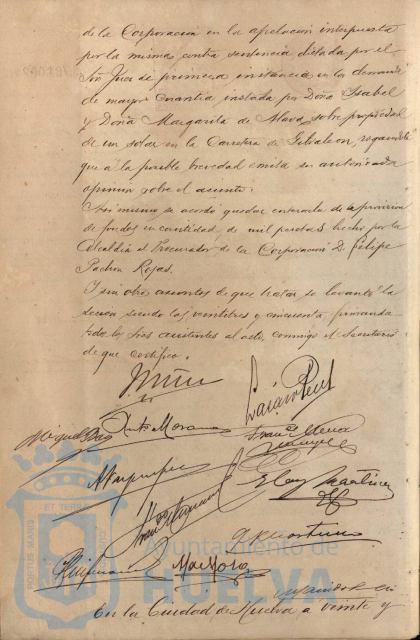 de la Corporacion en la apelacion interpuesta
por la misma contra sentencia dictada por el
Sor Juez de primera instancia en la demanda
de mayor cuantia instada por Doña Isabel
y Doña Margarita de Mora sobre propiedad
de un solar en la Carretera de Gibraleon, rogandole
que á la posible brevedad emita su autorizada
opinion sobre el asunto.
Asi mismo se acordó quedar enterada de la provision
de fondos en cantidad de mil pesetas hecho por la
Alcaldía al Procurador de la Corporacion D. Felipe
Pachon Rojas.
Y sin otro asuntos de que tratar se levantó la
sesion siendo las veintitres y cincuenta, firmando
todos los Sres asistentes al acto, conmigo el Secretario
de que certifico.
Anto Morano
Eloy Martinez
Ayuntamiento de
HUELVA
PORTUS MARIS
ET TERRAE
En la Ciudad de Huelva a veinte y